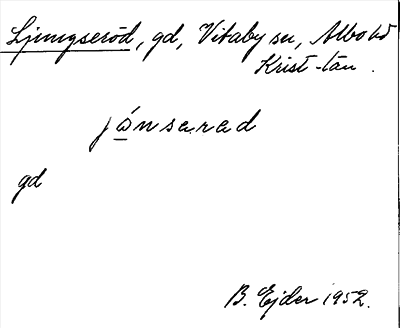 Ljungseröd, gd, Vitaby sn, Albo hd
Krist-län.
jónsarad
gd
B. Ejder 1952.